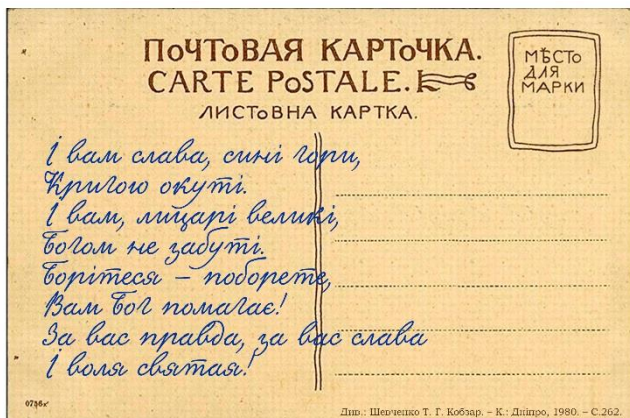 ПОЧТОВАЯ КАРТОЧКА.
CARTE POSTALE.
ЛИСТОВНА КАРТКА.
МѢСТО
ДЛЯ
МАРКИ
І вам слава, сині гори,
Кригою окуті.
І вам, лицарі великі,
Богом не забуті.
Борітеся – поборете,
Вам Бог помагає!
За вас правда, за вас слава
І воля святая!
Див.: Шевченко Т. Г. Кобзар. – К.: Дніпро, 1980. – С.262.